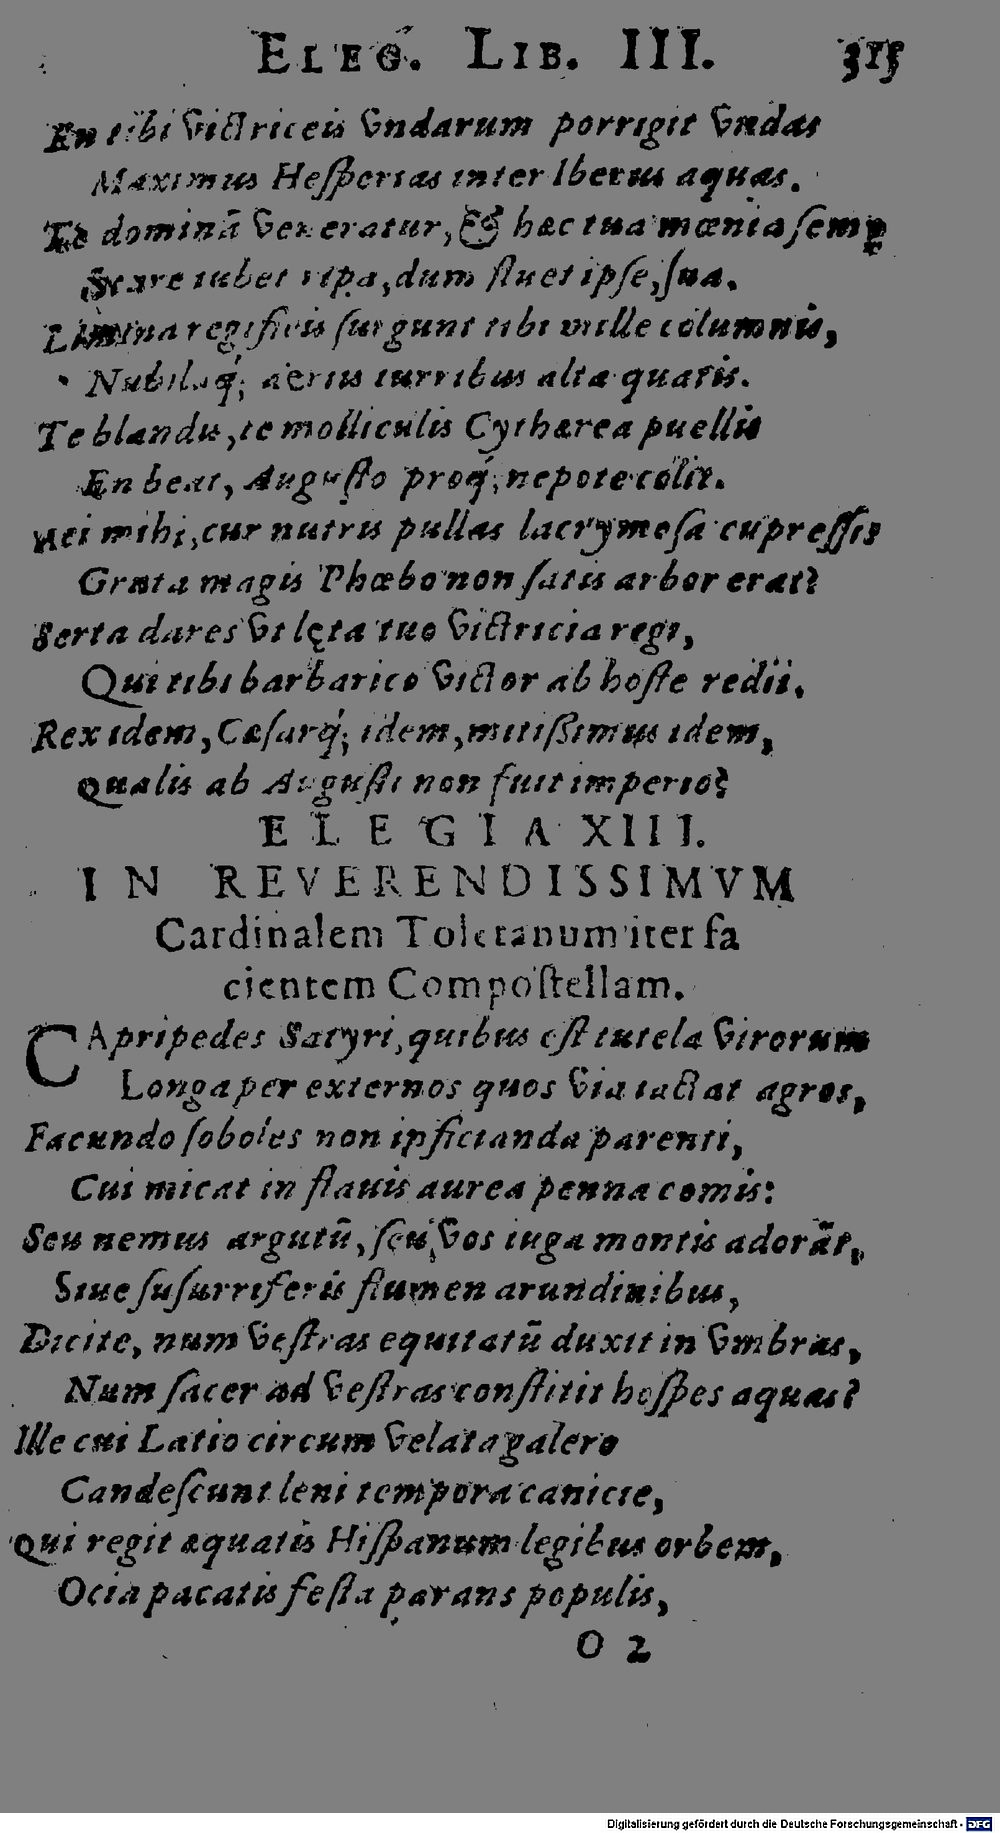 ELEG. LIB. III. 315
En tibi victriceis vndarum porrigit vndas
Maximus Hesperias inter Iberus aquas.
Te dominā veneratur, & hæc tua mœnia semꝑ
Stare iubet ripa, dum fluet ipse, sua.
Limina regificis surgunt tibi mille columnis,
Nubilaq́; aerius turribus alta quatis.
Te blandis, te molliculis Cytharea puellis
En beat, Augusto proq́; nepote colit.
Hei mihi, cur nutris pullas lacrymosa cupressis
Grata magis Phœbo non satis arbor erat?
Serta dares vt lęta tuo victricia regi,
Qui tibi barbarico victor ab hoste redii.
Rex idem, Cæsarq́; idem, mitissimus idem,
Qualis ab Augusti non fuit imperio?
ELEGIA XIII.
IN REVERENDISSIMVM
Cardinalem Toletanum iter fa
cientem Compostellam.
CApripedes Satyri, quibus est tutela virorum
Longa per externos quos via iactat agros,
Facundo soboles non inficianda parenti,
Cui micat in flauis aurea penna comis:
Seu nemus argutū, seu vos iuga montis adorāt,
Siue susurriferis flumen arundinibus,
Dicite, num vestras equitatū duxit in vmbras,
Num sacer ad vestras constitit hospes aquas?
Ille cui Latio circum velata galero
Candescunt leni tempora canicie,
Qui regit æquatis Hispanum legibus orbem,
Ocia pacatis festa parans populis,
O 2
Digitalisierung gefördert durch die Deutsche Forschungsgemeinschaft - DFG